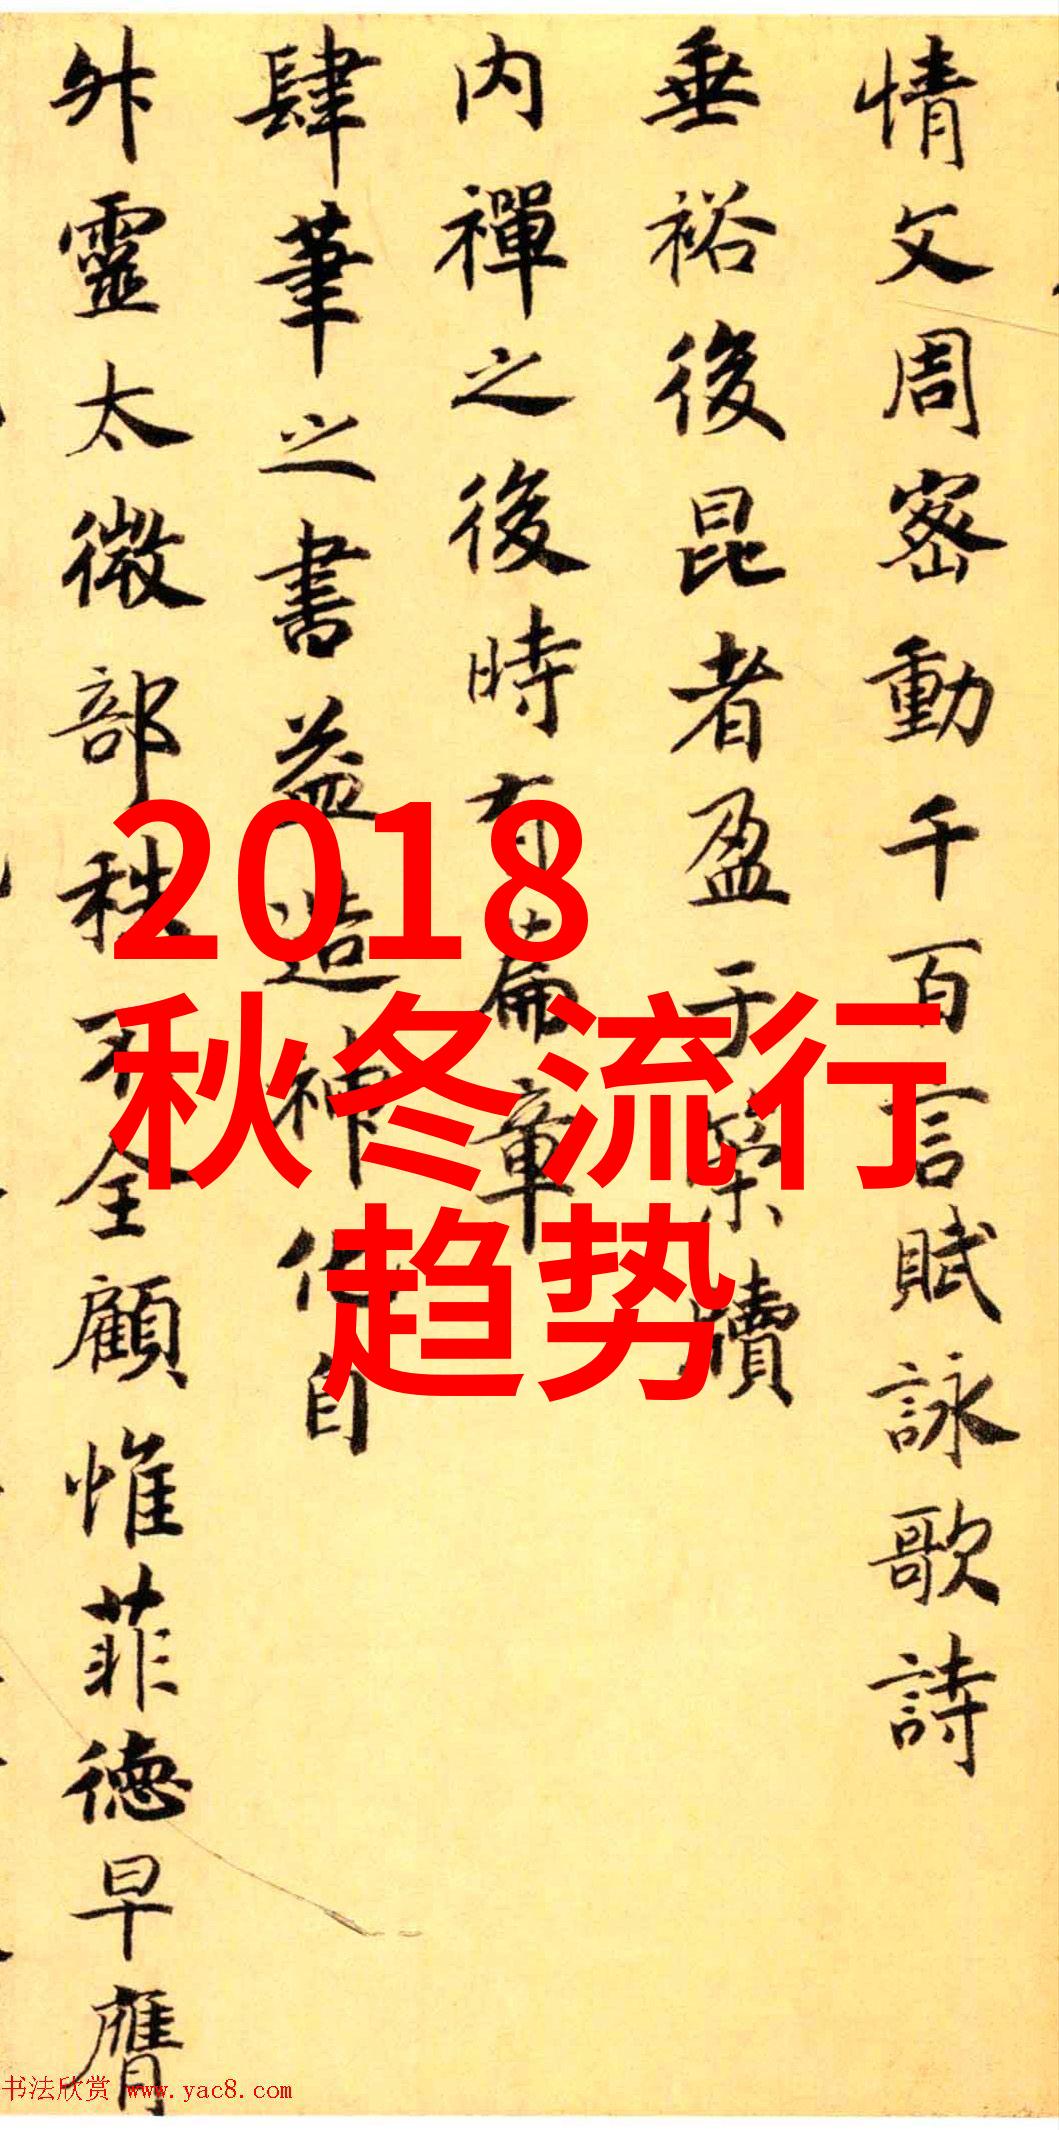 情文周密動千百言賦詠歌詩
垂裕後昆者盈于簡牘
内禪之後時有篇章
肆筆之書益造神化自
外靈太微部秩不全顧惟菲德早膺
2018
秋冬流行
趋势
书法欣赏 www.yac8.com